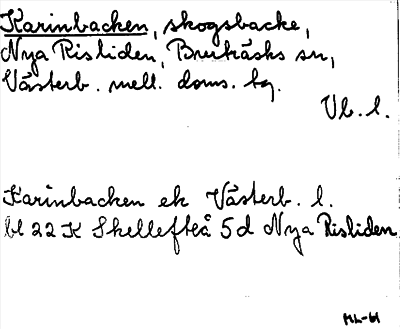 Karinbacken, skogsbacke,
Nya Risliden, Burträsks sn,
Västerb. mell. doms. tg.
Vb. l.
Karinbacken ek Västerb. l.
bl 22 K Skellefteå 5d Nya Risliden